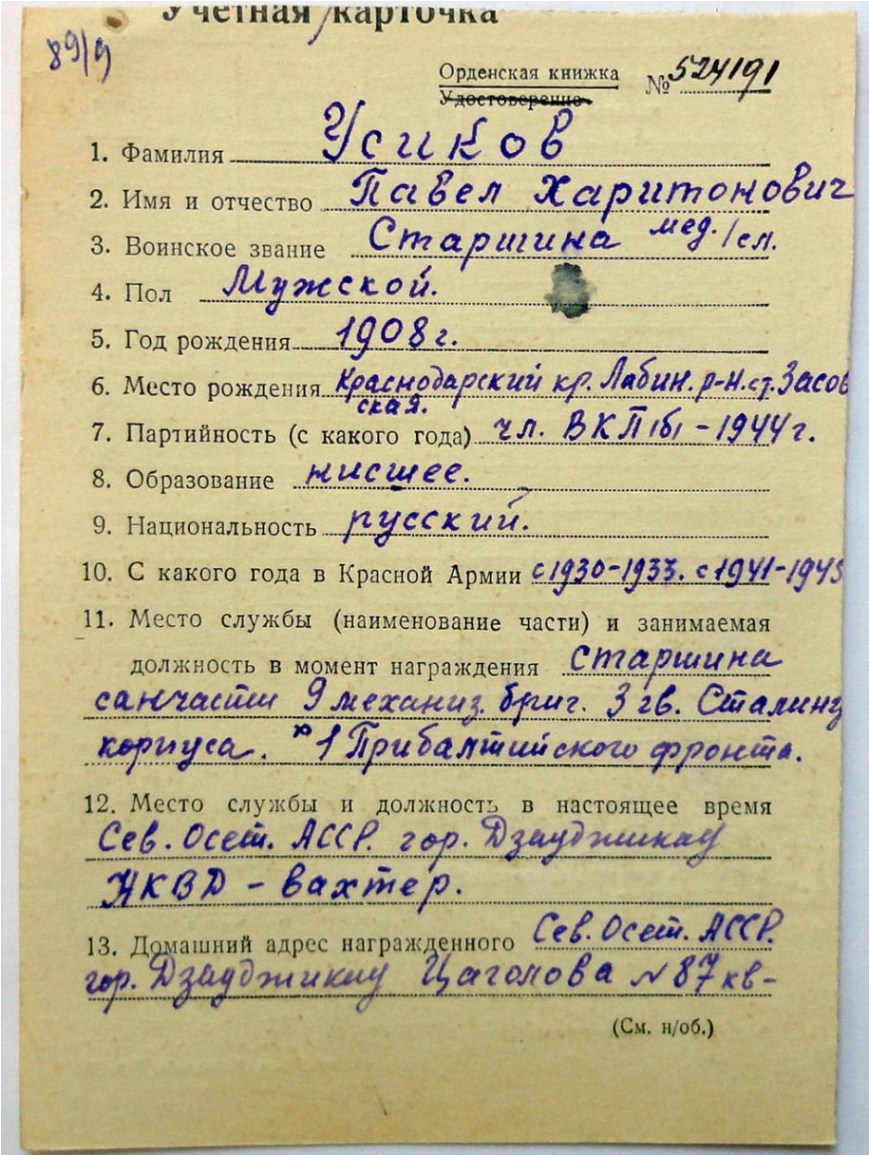 Учетная карточка
89/9
Орденская книжка
Удостоверение
№ 524191
1. Фамилия Усиков
2. Имя и отчество Павел Харитонович
3. Воинское звание Старшина мед./сл.
4. Пол Мужской.
5. Год рождения 1908 г.
6. Место рождения Краснодарский кр. Лабин. р-н. ст. Засов
ская.
7. Партийность (с какого года) чл. ВКП(б) - 1944 г.
8. Образование нисшее.
9. Национальность русский.
10. С какого года в Красной Армии с 1930-1933. с 1941-1945
11. Место службы (наименование части) и занимаемая
должность в момент награждения старшина
санчасти 9 механиз. бриг. 3 гв. Сталинг
корпуса. 1 Прибалтийского фронта.
12. Место службы и должность в настоящее время
Сев. Осет. АССР. гор. Дзауджикау
НКВД - вахтер.
13. Домашний адрес награжденного Сев. Осет. АССР.
гор. Дзауджикау Цаголова № 87 кв-
(См. н/об.)